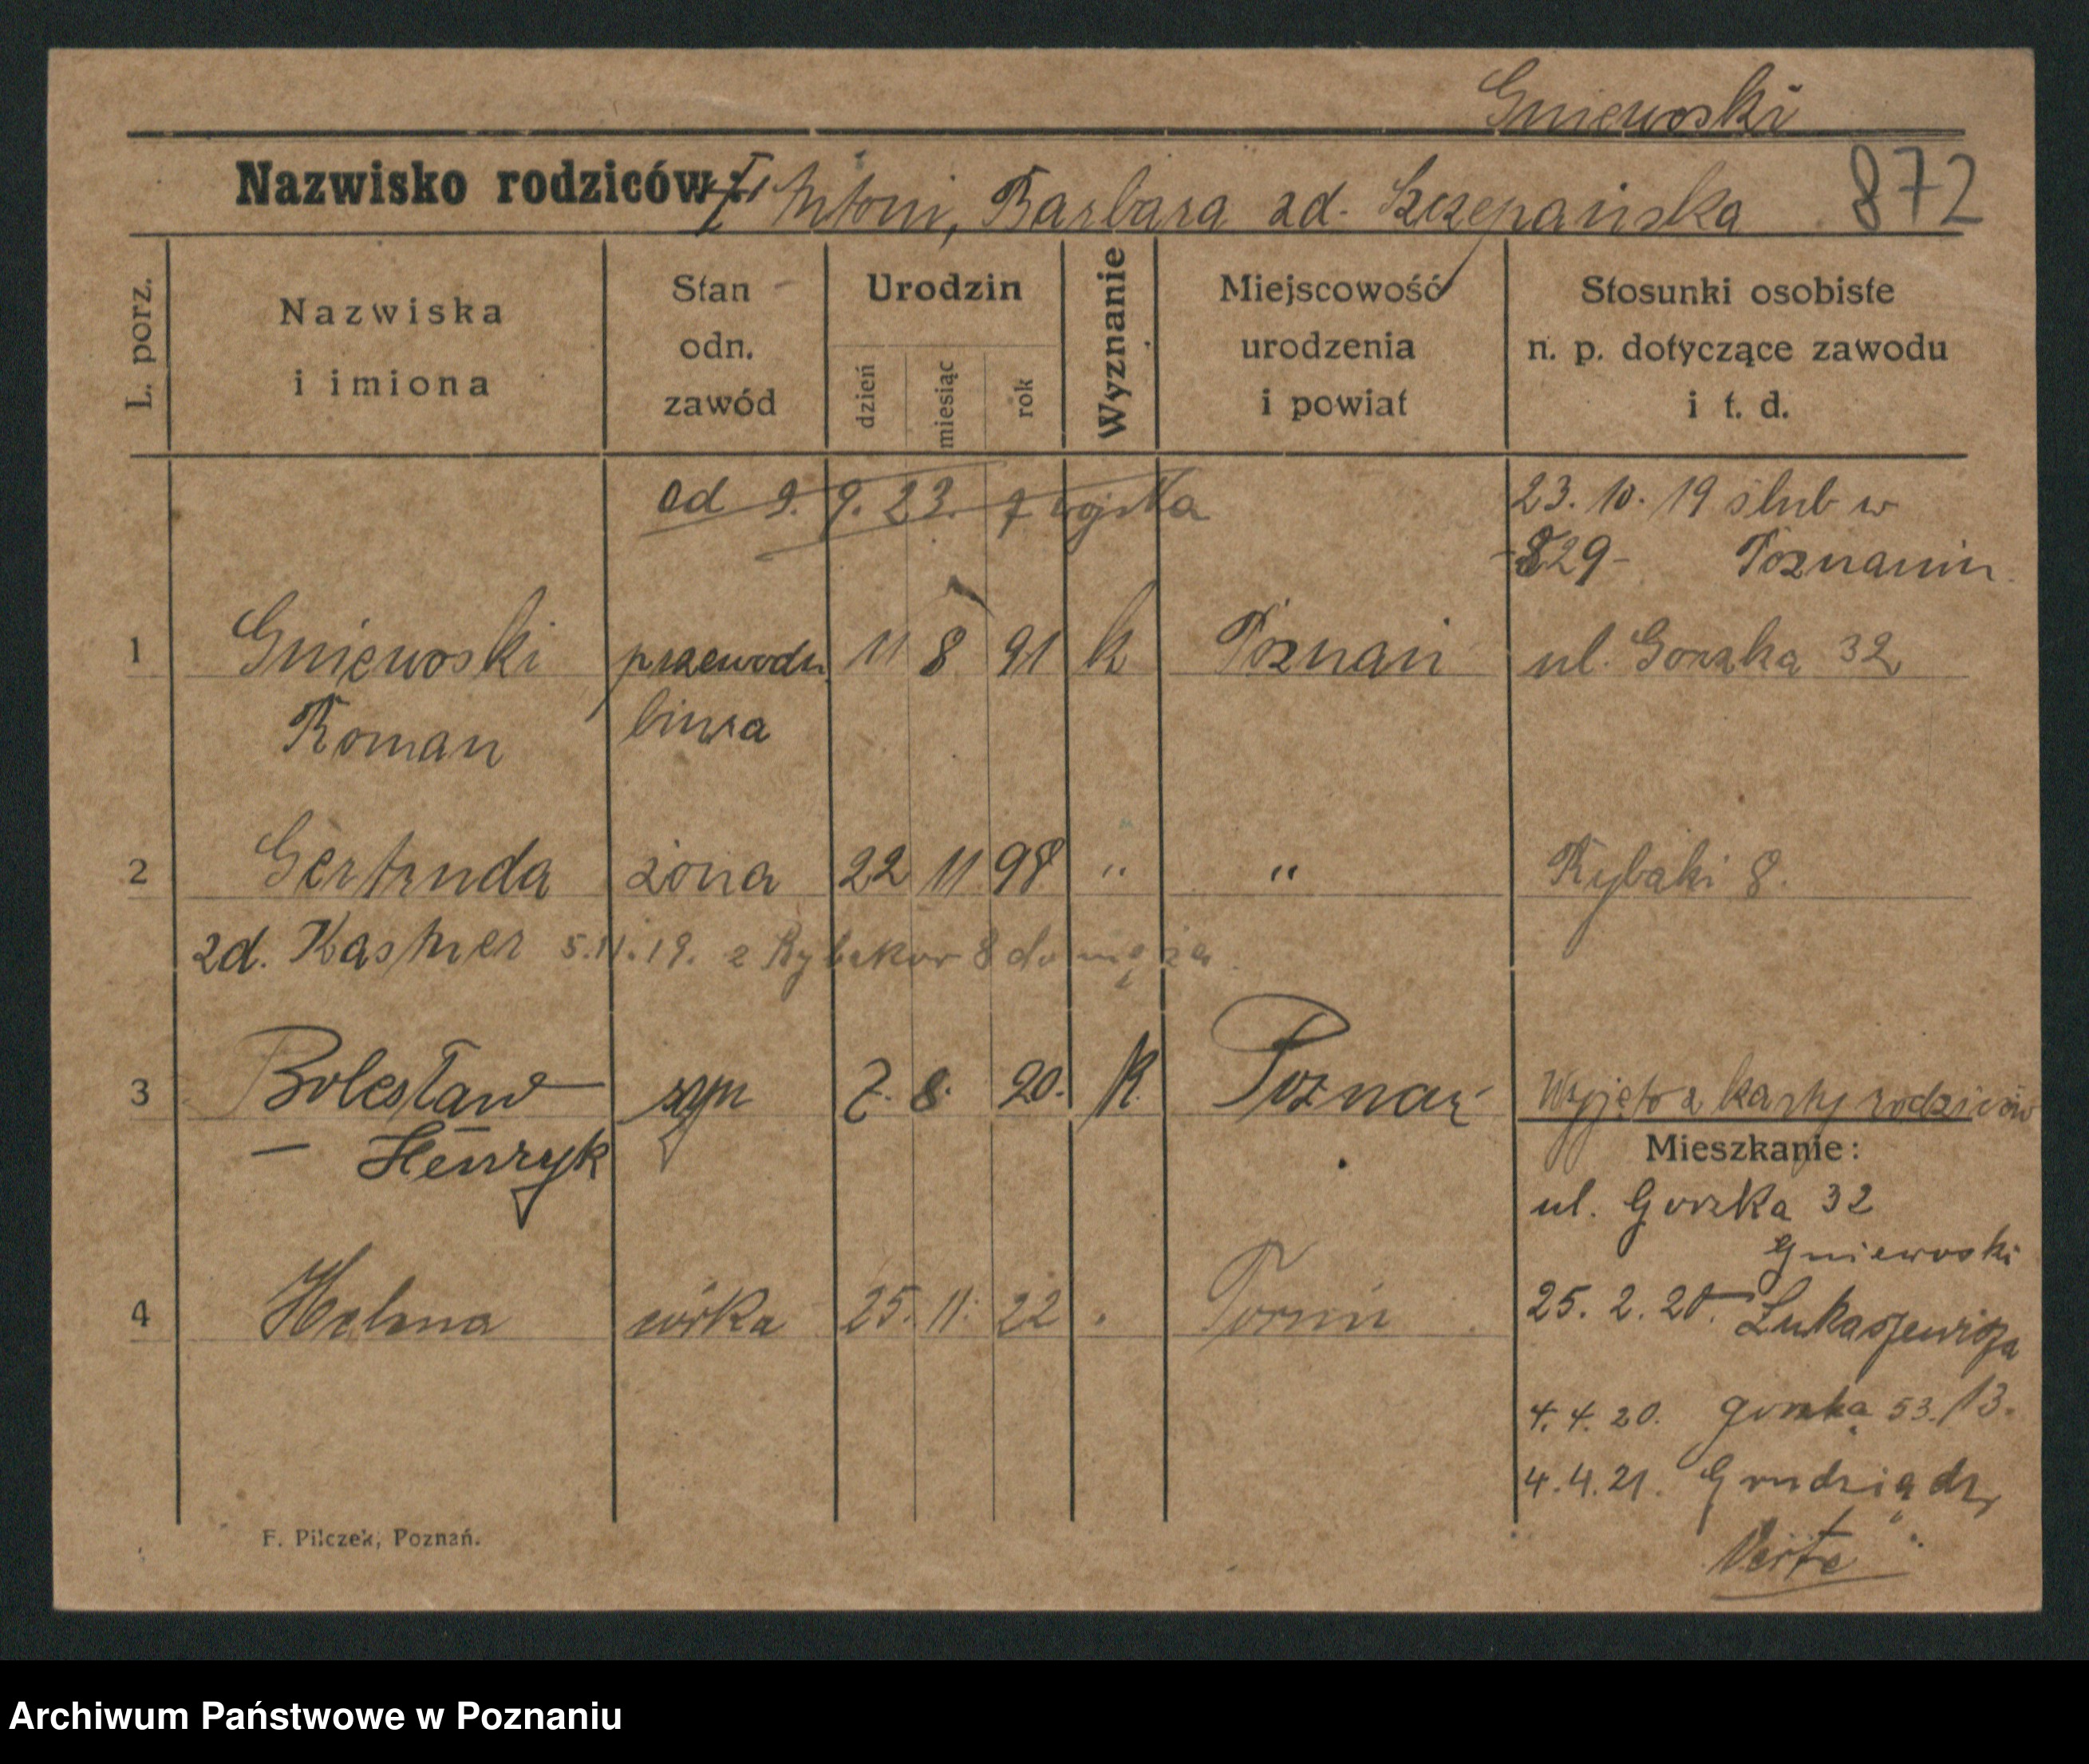 Gniewoski
Nazwisko rodziców: Antoni, Barbara zd. Szczepańska 872
L. porz.
Nazwiska
i imiona
Stan
odn.
zawód
Urodzin
dzień
miesiąc
rok
Wyznanie
Miejscowość
urodzenia
i powiat
Stosunki osobiste
n. p. dotyczące zawodu
i t. d.
od 9. 9. 23. z wojska
23. 10. 19 ślub w
-829- Poznaniu
1 Gniewoski przewodn. 11 8 91 k Poznań ul. Gorzka 32
Roman biura
2 Gertruda żona 22 11 98 " " Rybaki 8.
zd. Kastner 5.11.19. z Rybakow 8 do męża.
3 Bolesław syn 7. 8. 20. k. Poznań Wzjęto z karty rodziców
— Henryk
Mieszkanie:
ul. Gorzka 32
Gniewoski
4 Helena córka 25. 11. 22 Toruń
25. 2. 20. Lukaszewicza
4. 4. 20. Gorzka 53. 13.
4. 4. 21. Grudziądz,
Verte
F. Pilczek, Poznań.
Archiwum Państwowe w Poznaniu